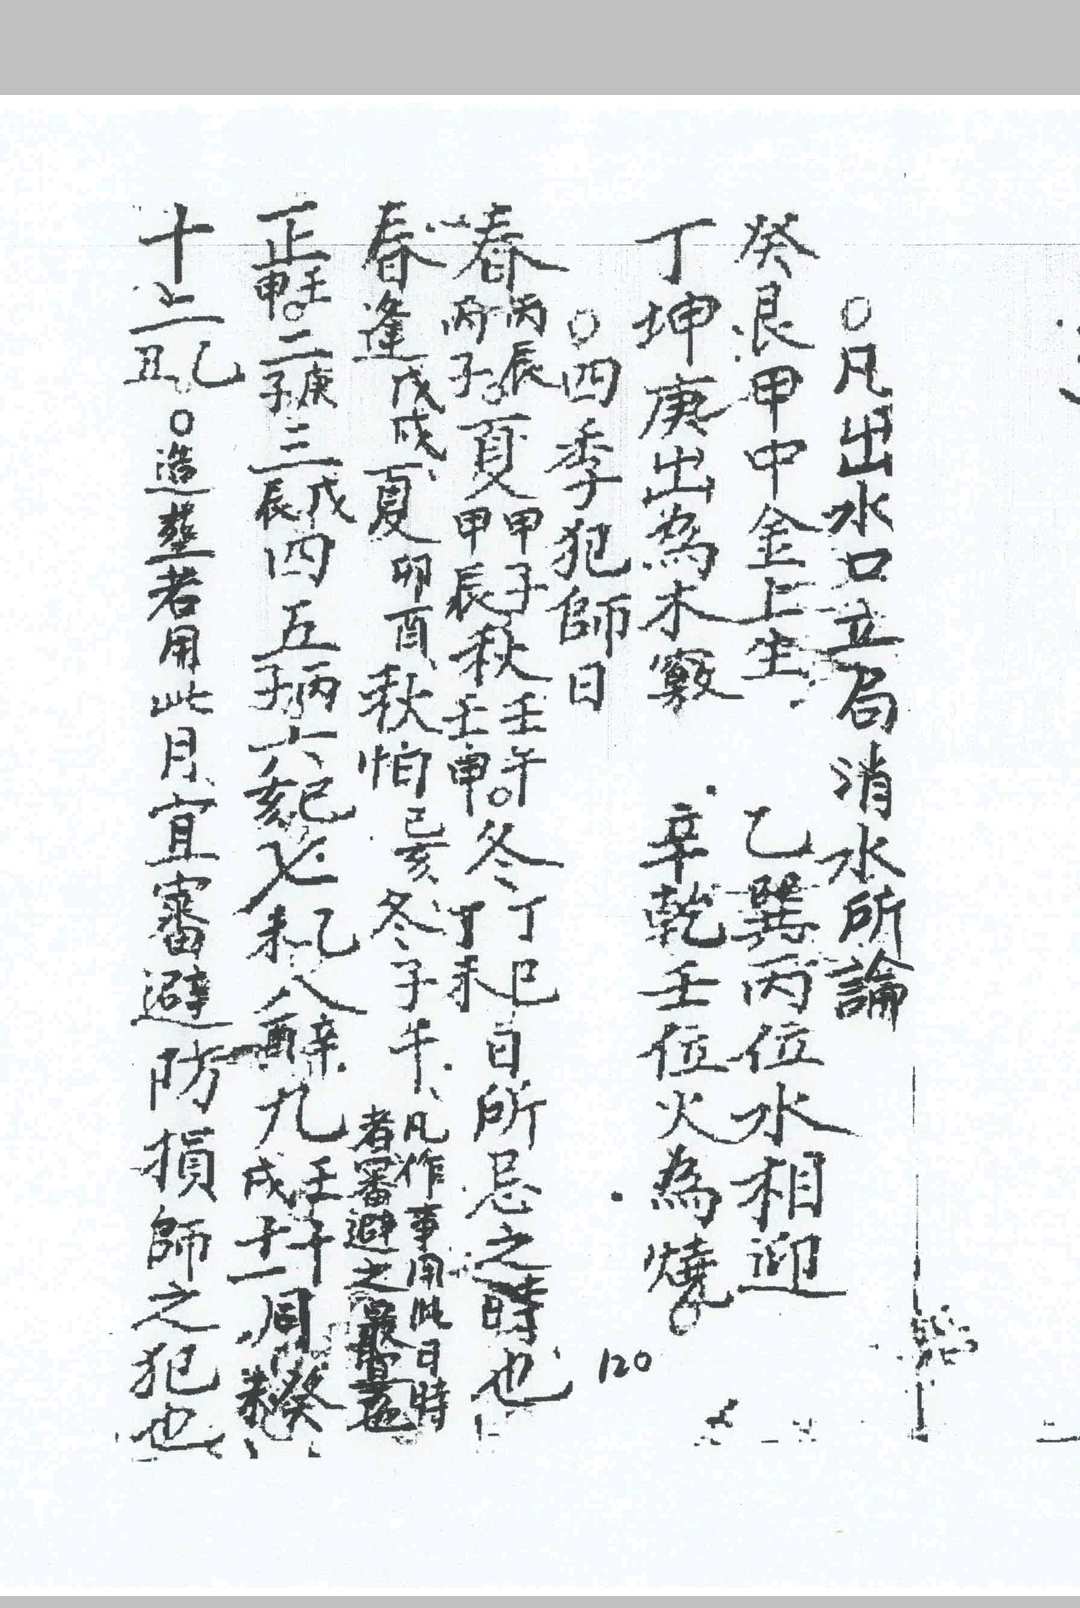 〇凡出水口立局消水所論
癸艮甲中金上生 乙巽丙位水相迎
丁坤庚出為木竅 辛乾壬位火為燒〇
〇四季犯師日
春丙辰丙子。夏甲子甲辰秋壬午壬申。冬丁巳丁未日所忌之時也
春逢戊戌夏卯酉秋怕己亥冬子午、凡作事用此日時者審避之最宜也
正壬申。二庚子三戊辰四五丙子六己亥七乙未八辛酉九壬戌十壬午十一月同癸未
十二乙丑。〇造葬者用此月宜審避防損師之犯也
120